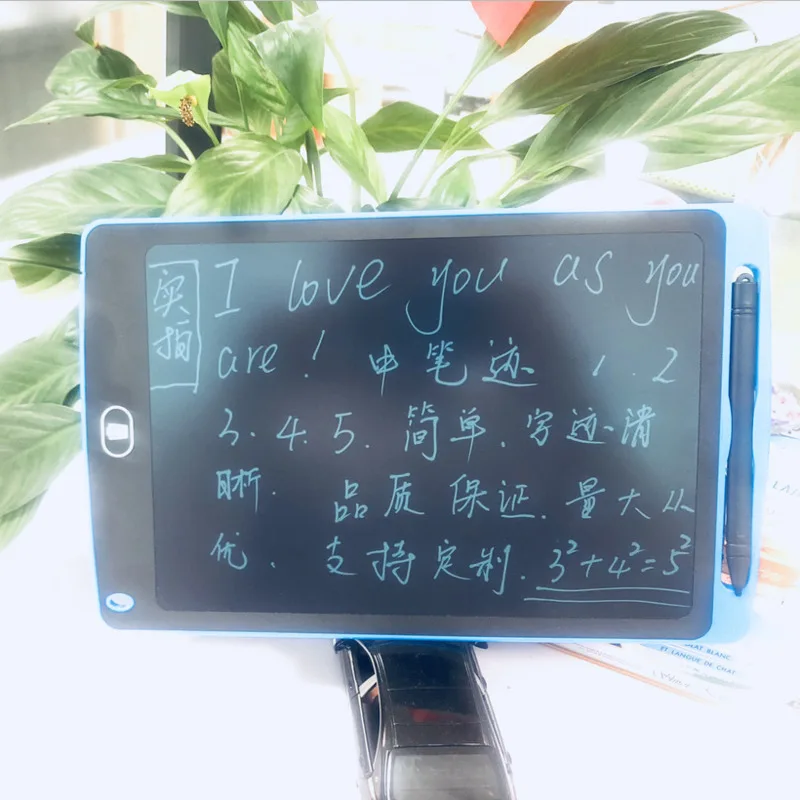 实拍
I love you as you
are! 中笔迹 1.2
3.4.5. 简单.字迹清
晰. 品质保证.量大从
优. 支持定制. 3²+4²=5²
AT BLANC
ET LANGUE DE CHAT